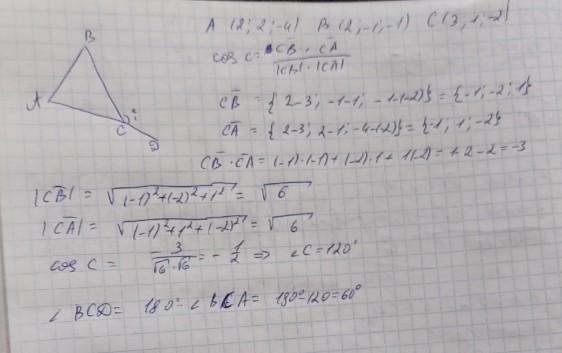 A (2; 2; -4) B (2, -1; -1) C (3, 1; -2)
cos C = CB · CA / |CB| · |CA|
B
A
C
D
CB = { 2-3; -1-1; -1-(-2)} = {-1; -2; 1}
CA = { 2-3; 2-1; -4-(-2)} = {-1; 1; -2}
CB · CA = (-1)·(-1) + (-2)·1 + 1(-2) = + 2 - 2 = -3
|CB| = √(-1)²+(-2)²+1² = √6
|CA| = √(-1)²+1²+(-2)² = √6
cos C = - 3/√6·√6 = - 1/2 ⇒ ∠C = 120°
∠ BCD = 180° - ∠ BCA = 180° - 120 = 60°